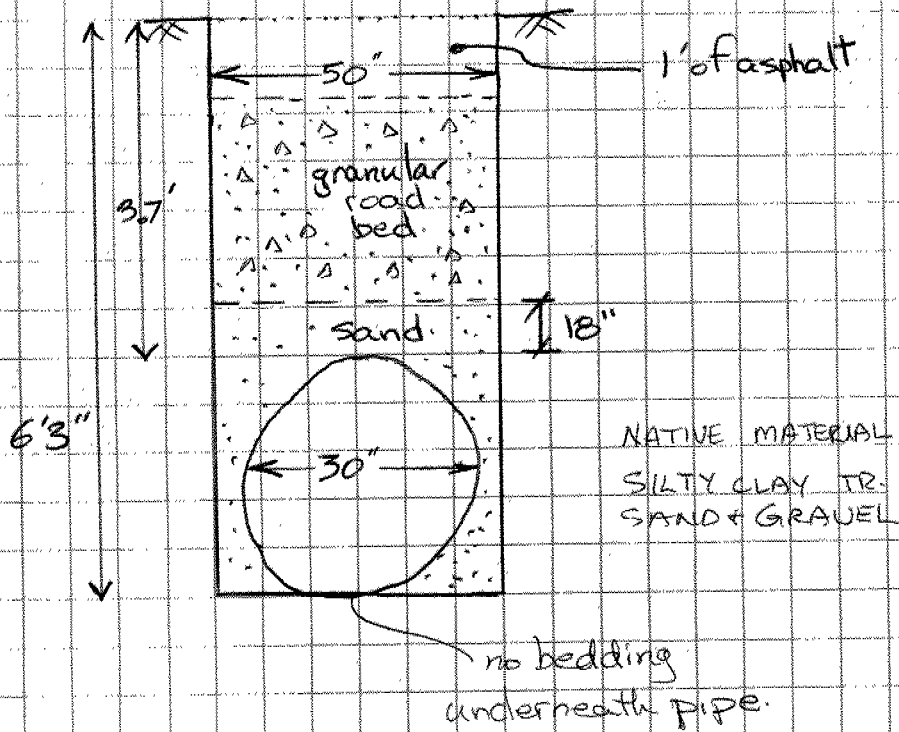 50"
1' of asphalt
granular
road
bed.
3.7'
sand.
18"
6'3"
30"
NATIVE MATERIAL
SILTY CLAY TR.
SAND & GRAVEL
no bedding
underneath pipe.